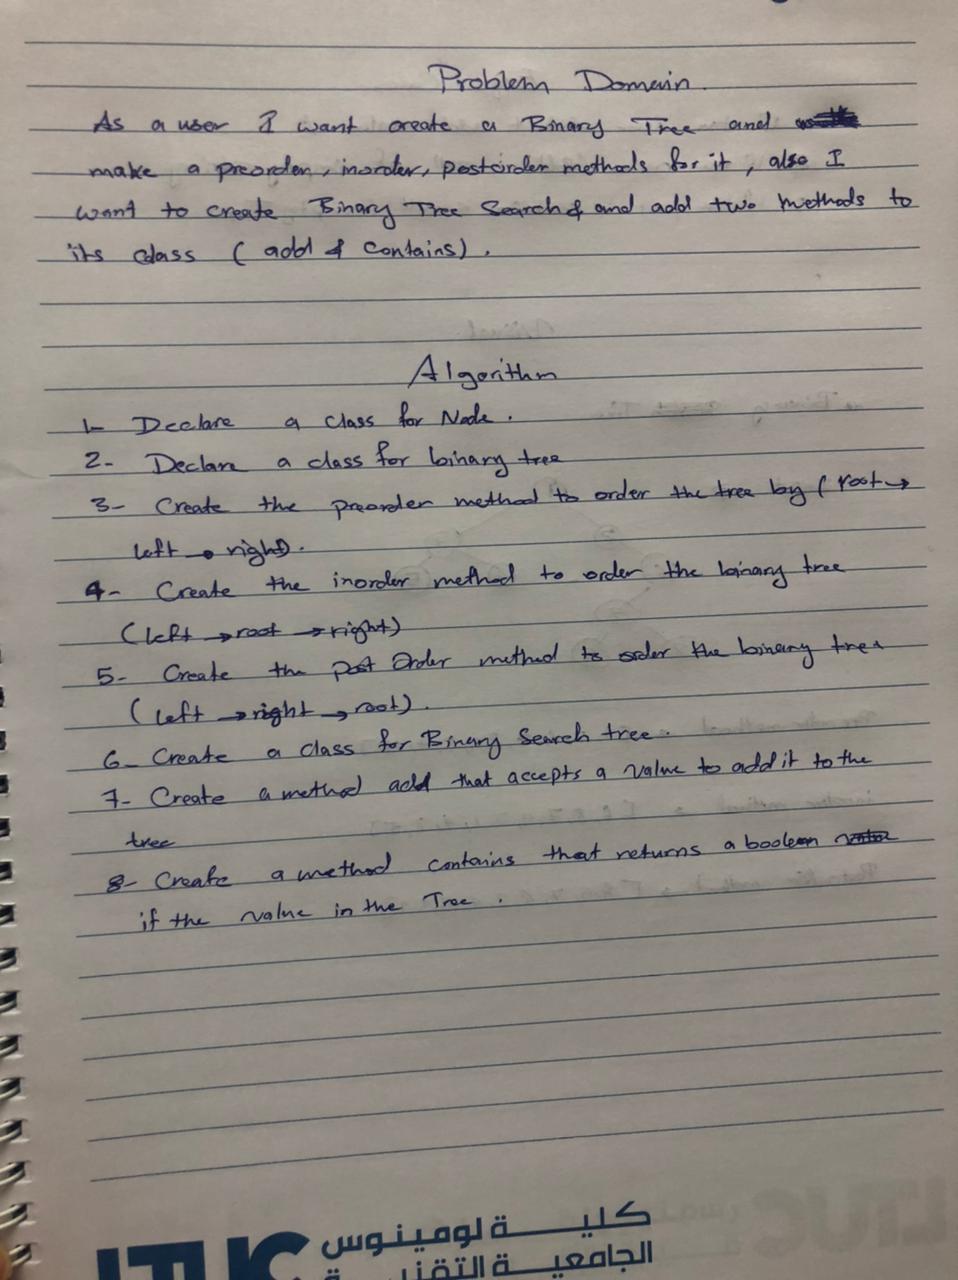 Problem Domain.
As a user I want create a Binary Tree and
make a preorder, inorder, postorder methods for it, also I
want to create Binary Tree Search & and add two methods to
its class ( add & contains ) .
Algorithm
1- Declare a class for Node .
2- Declare a class for binary tree
3- Create the preorder method to order the tree by ( root →
left → right).
4- Create the inorder method to order the binary tree
( left → root → right)
5- Create the post Order method to order the binary tree
( left → right → root) .
6- Create a class for Binary Search tree .
7- Create a method add that accepts a value to add it to the
tree
8- Create a method contains that returns a boolean
if the value in the Tree .
كليـــة لومينوس
الجامعيـــة التقنيـــة
LTUC